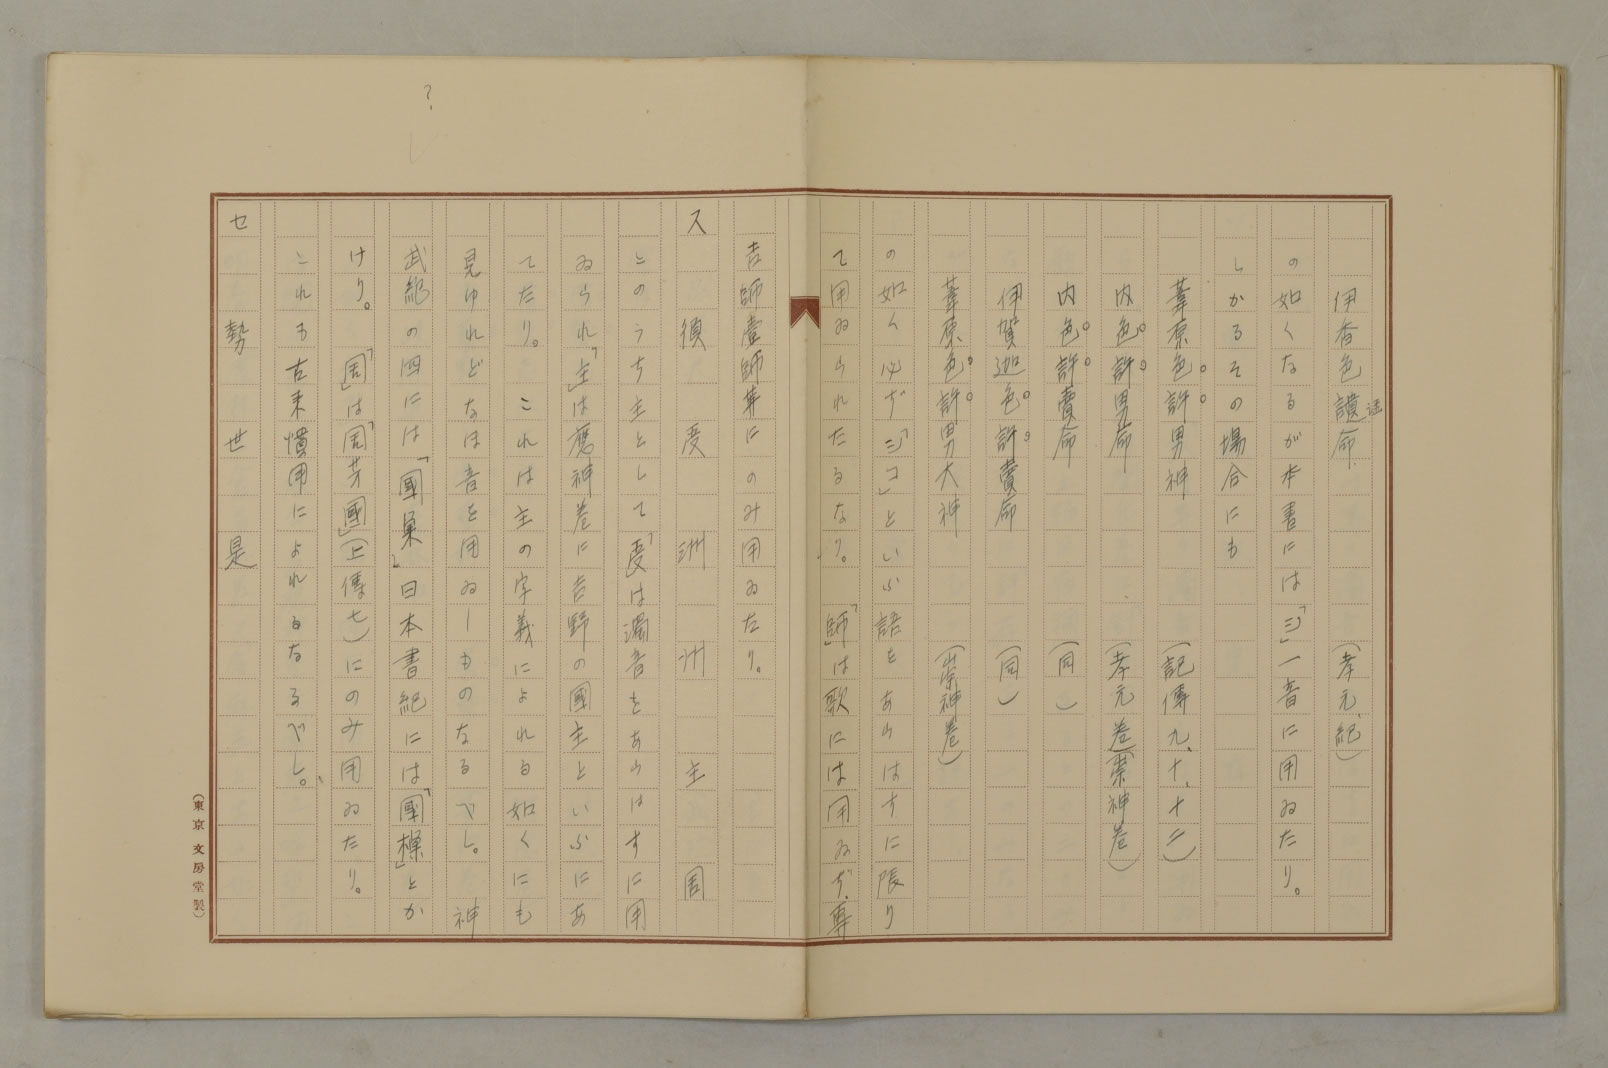 伊香色謎命　　　　（孝元紀）
の如くなるが本書には「シ」一音に用ゐたり。
しかるその場合にも
葦原色許男神　　　　（記傳九、十、十二）
内色許男命　　　　（孝元卷）（崇神卷）
内色許賣命　　　　（同　）
伊賀迦色許賣命　　　　（同　）
葦原色許男大神　　　　（崇神卷）
の如く必ず「シコ」といふ語をあらはすに限り
て用ゐられたるなり。「師」は歌には用ゐず、專
吉師壹師等にのみ用ゐたり。
ス　須　受　洲　州　主　周
このうち主として「受」は濁音をあらはすに用
ゐられ「主」は應神卷に吉野の國主といふにあ
てたり。これは主の字義によれる如くにも
見ゆれどなほ音を用ゐしものなるべし。神
武紀の四には「國巢」日本書紀には「國樔」とか
けり。「周」は「周芳國」（上傳七）にのみ用ゐたり。
これも古来慣用によれるなるべし。
セ　勢　世　是
（東京 文房堂製）
?